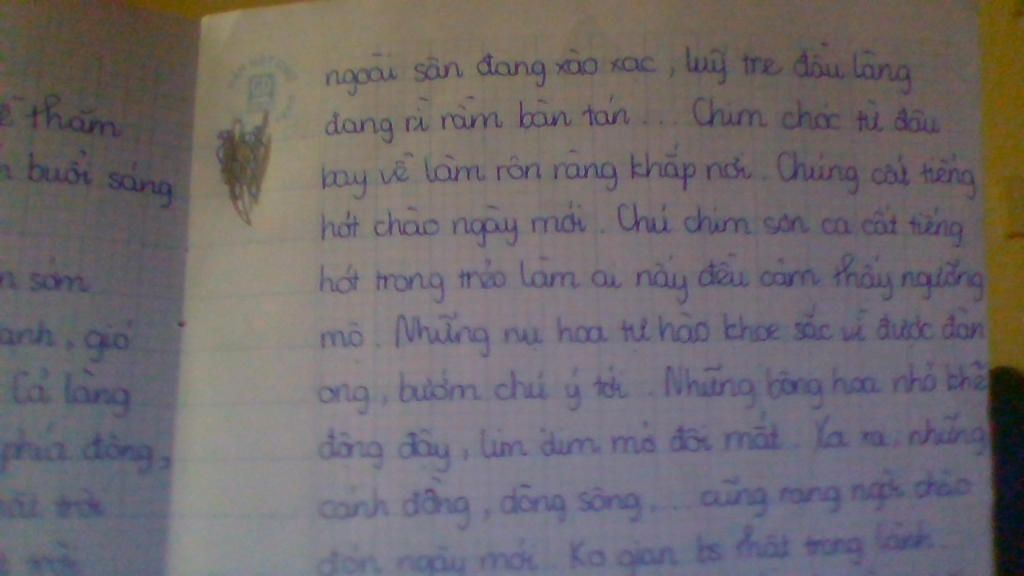 ề thăm
buổi sáng
sớm
anh, gió
Cả làng
phía đông,
ngoài sân đang xào xạc, luỹ tre đầu làng
đang rì rầm bàn tán... Chim chóc từ đâu
bay về làm rộn ràng khắp nơi. Chúng cất tiếng
hót chào ngày mới. Chú chim sơn ca cất tiếng
hót trong trẻo làm ai nấy đều cảm thấy ngưỡng
mộ. Những nụ hoa tự hào khoe sắc vì được đàn
ong, bướm chú ý tới. Những bông hoa nhỏ khẽ
động đậy, lim dim mở đôi mắt. Xa xa, những
cánh đồng, dòng sông,... cũng rạng ngời chào
đón ngày mới. Ko gian bs thật trong lành.